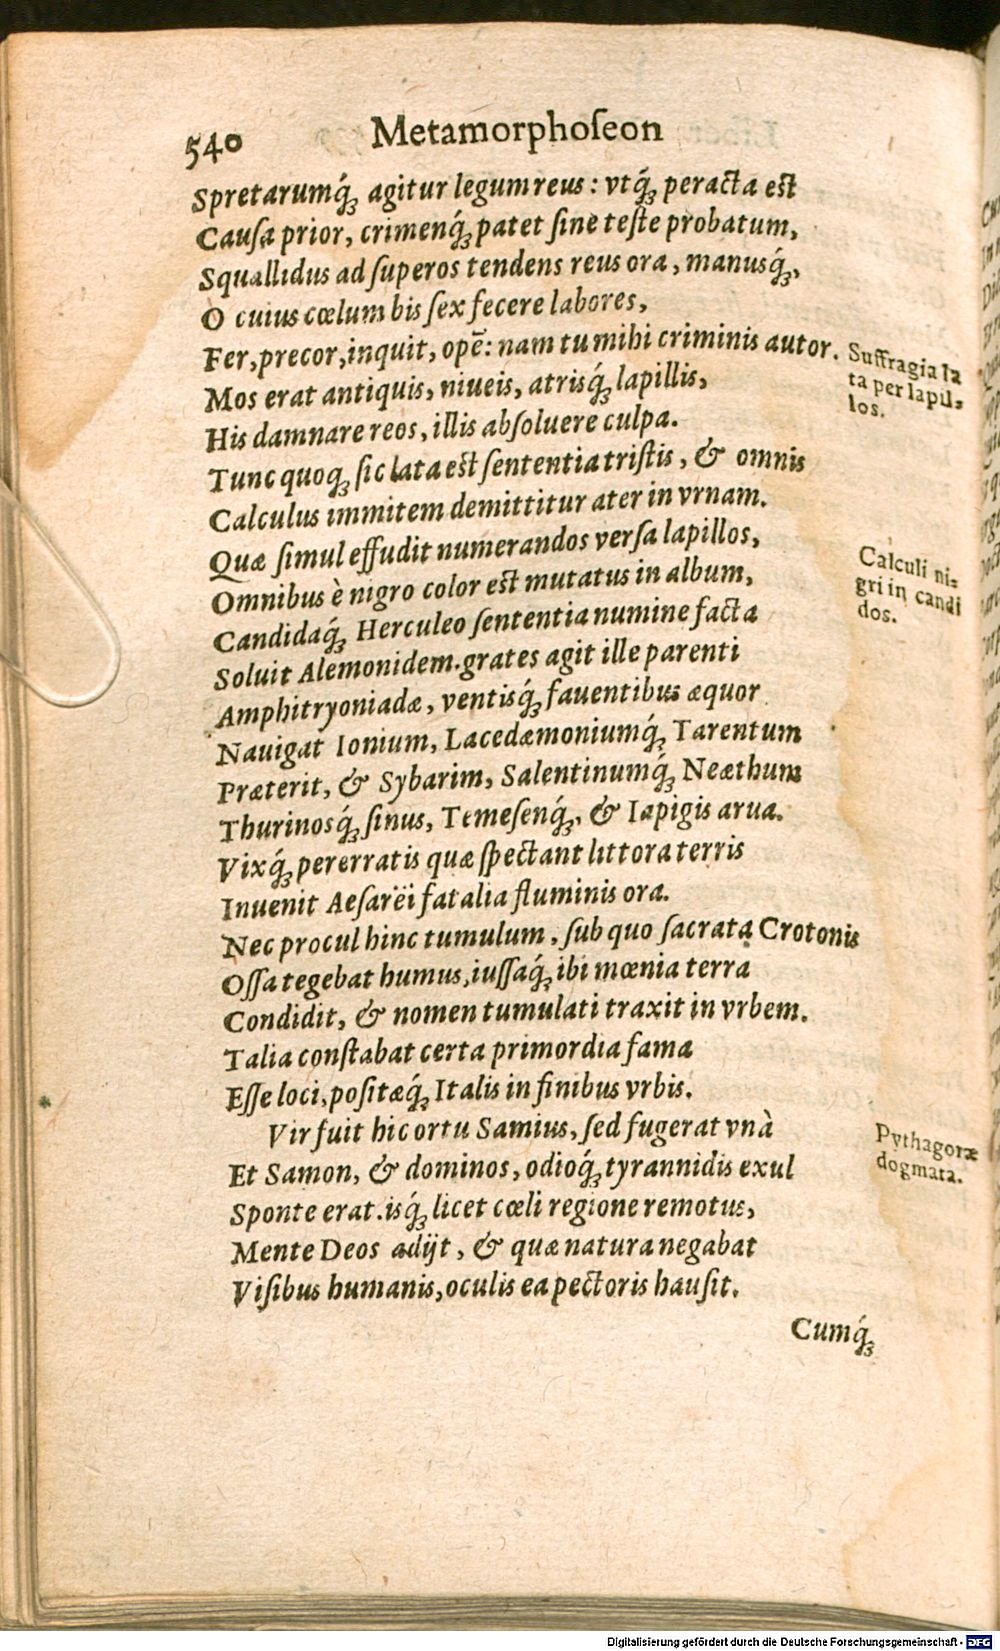 540 Metamorphoſeon
Spretarumq́ꝫ agitur legum reus: vtq́ꝫ peracta est
Cauſa prior, crimenq́ꝫ patet ſine teſte probatum,
Squallidus ad ſuperos tendens reus ora, manusq́ꝫ,
O cuius cœlum bis ſex fecere labores,
Fer, precor, inquit, opē: nam tu mihi criminis autor.
Suffragia la
ta per lapil-
los.
Mos erat antiquis, niueis, atrisq́ꝫ lapillis,
His damnare reos, illis abſoluere culpa.
Tunc quoqꝫ ſic lata est ſententia triſtis, & omnis
Calculus immitem demittitur ater in vrnam.
Quæ ſimul effudit numerandos verſa lapillos,
Omnibus è nigro color est mutatus in album,
Calculi ni-
gri in candi
dos.
Candidaq́ꝫ Herculeo ſententia numine facta
Soluit Alemonidem. grates agit ille parenti
Amphitryoniadæ, ventisq́ꝫ fauentibus æquor
Nauigat Ionium, Lacedæmoniumq́ꝫ Tarentum
Præterit, & Sybarim, Salentinumq́ꝫ Neæthum
Thurinosq́ꝫ ſinus, Temeſenq́ꝫ, & Iapigis arua.
Vixq́ꝫ pererratis quæ ſpectant littora terris
Inuenit Aeſarëi fatalia fluminis ora.
Nec procul hinc tumulum, ſub quo ſacrata Crotonis
Oſſa tegebat humus, iuſſaq́ꝫ ibi mœnia terra
Condidit, & nomen tumulati traxit in vrbem.
Talia conſtabat certa primordia fama
Eſſe loci, poſitæq́ꝫ Italis in finibus vrbis.
Vir fuit hic ortu Samius, ſed fugerat vnà
Pythagoræ
dogmata.
Et Samon, & dominos, odioq́ꝫ tyrannidis exul
Sponte erat. isq́ꝫ licet cœli regione remotus,
Mente Deos adijt, & quæ natura negabat
Viſibus humanis, oculis ea pectoris hauſit.
Cumq́ꝫ
Digitalisierung gefördert durch die Deutsche Forschungsgemeinschaft - DFG